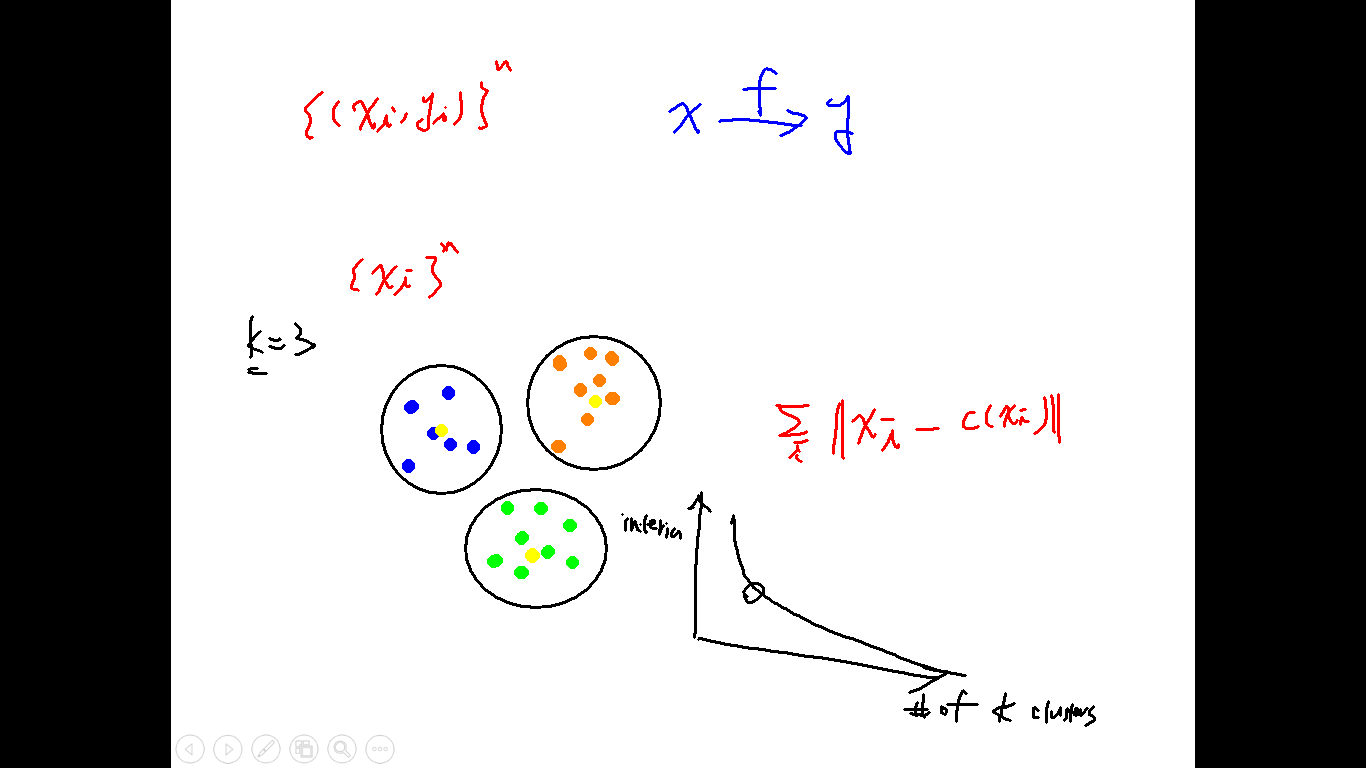 {(xi, yi)}^n
x →^f y
{xi}^n
k=3
∑i ||xi - c(xi)||
interia
# of k clusters